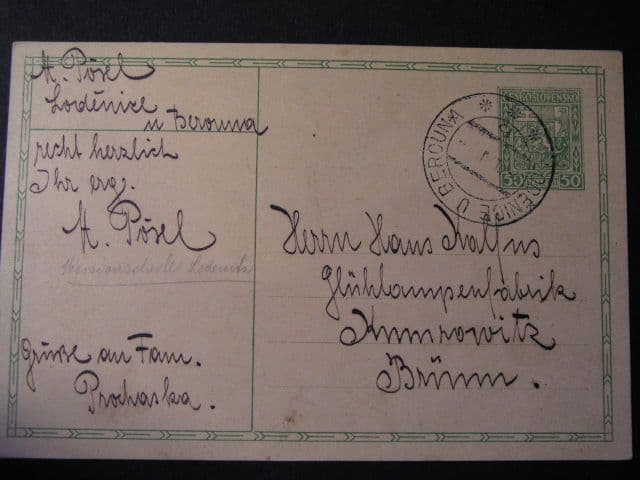 A. Pösel
Loděnice
u Berouna
recht herzlich
Ihr erg.
A. Pösel
Grüsse an Fam.
Prochaska.
ČESKOSLOVENSKO
50 50
U BEROUNA
Herrn Hans
Glühlampenfabrik
Kumrowitz
Brünn.